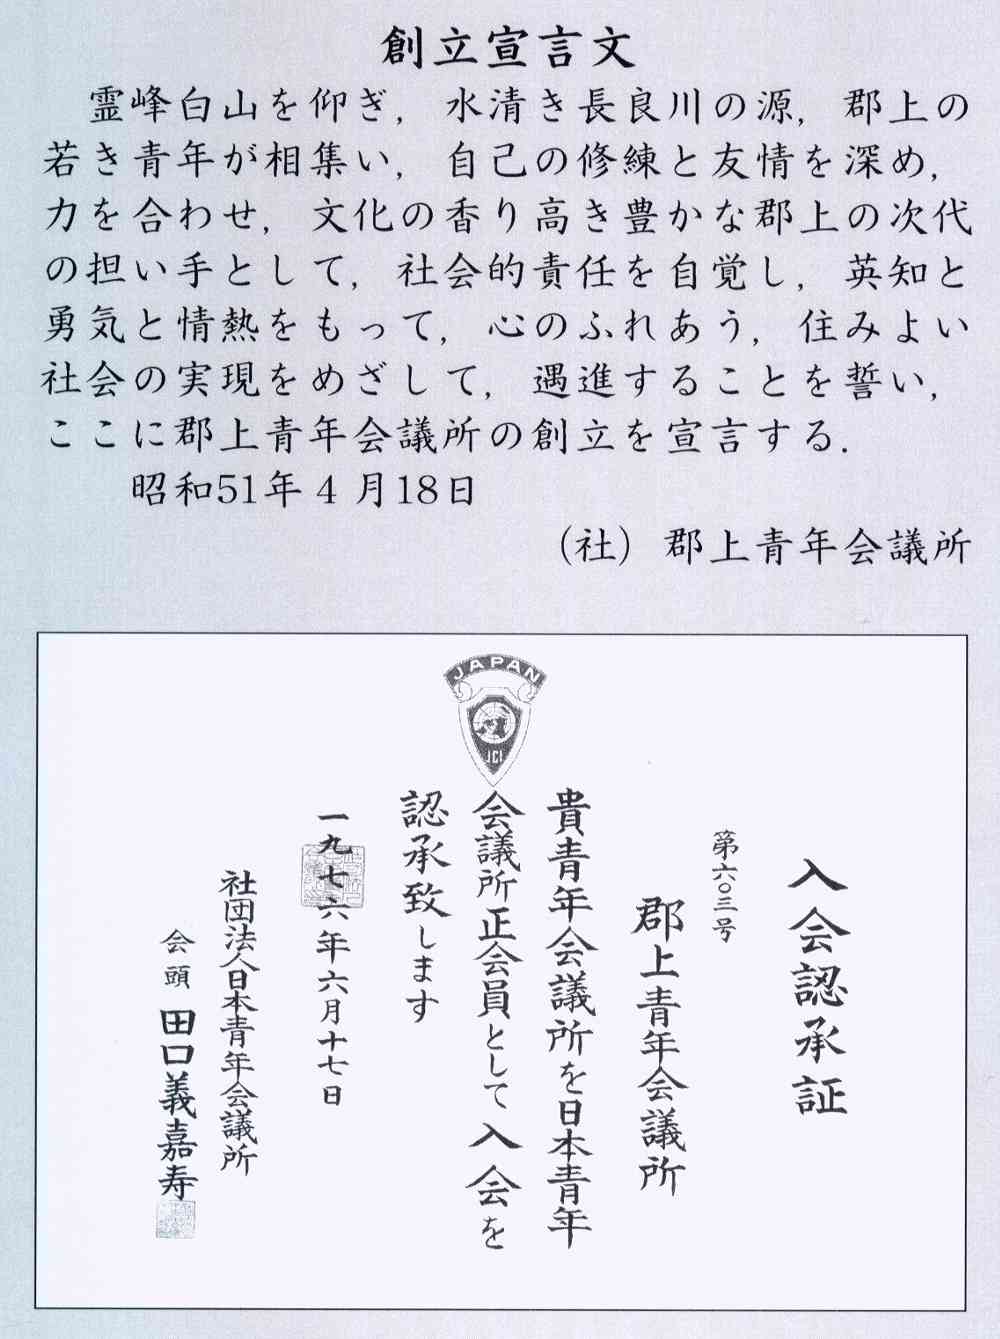 創立宣言文
霊峰白山を仰ぎ，水清き長良川の源，郡上の
若き青年が相集い，自己の修練と友情を深め，
力を合わせ，文化の香り高き豊かな郡上の次代
の担い手として，社会的責任を自覚し，英知と
勇気と情熱をもって，心のふれあう，住みよい
社会の実現をめざして，遇進することを誓い，
ここに郡上青年会議所の創立を宣言する．
昭和51年4月18日
（社）郡上青年会議所
JAPAN
JCI
入会認承証
第六〇三号
郡上青年会議所
貴青年会議所を日本青年
会議所正会員として入会を
認承致します
一九七六年六月十七日
社団法人日本青年会議所
会頭 田口義嘉寿